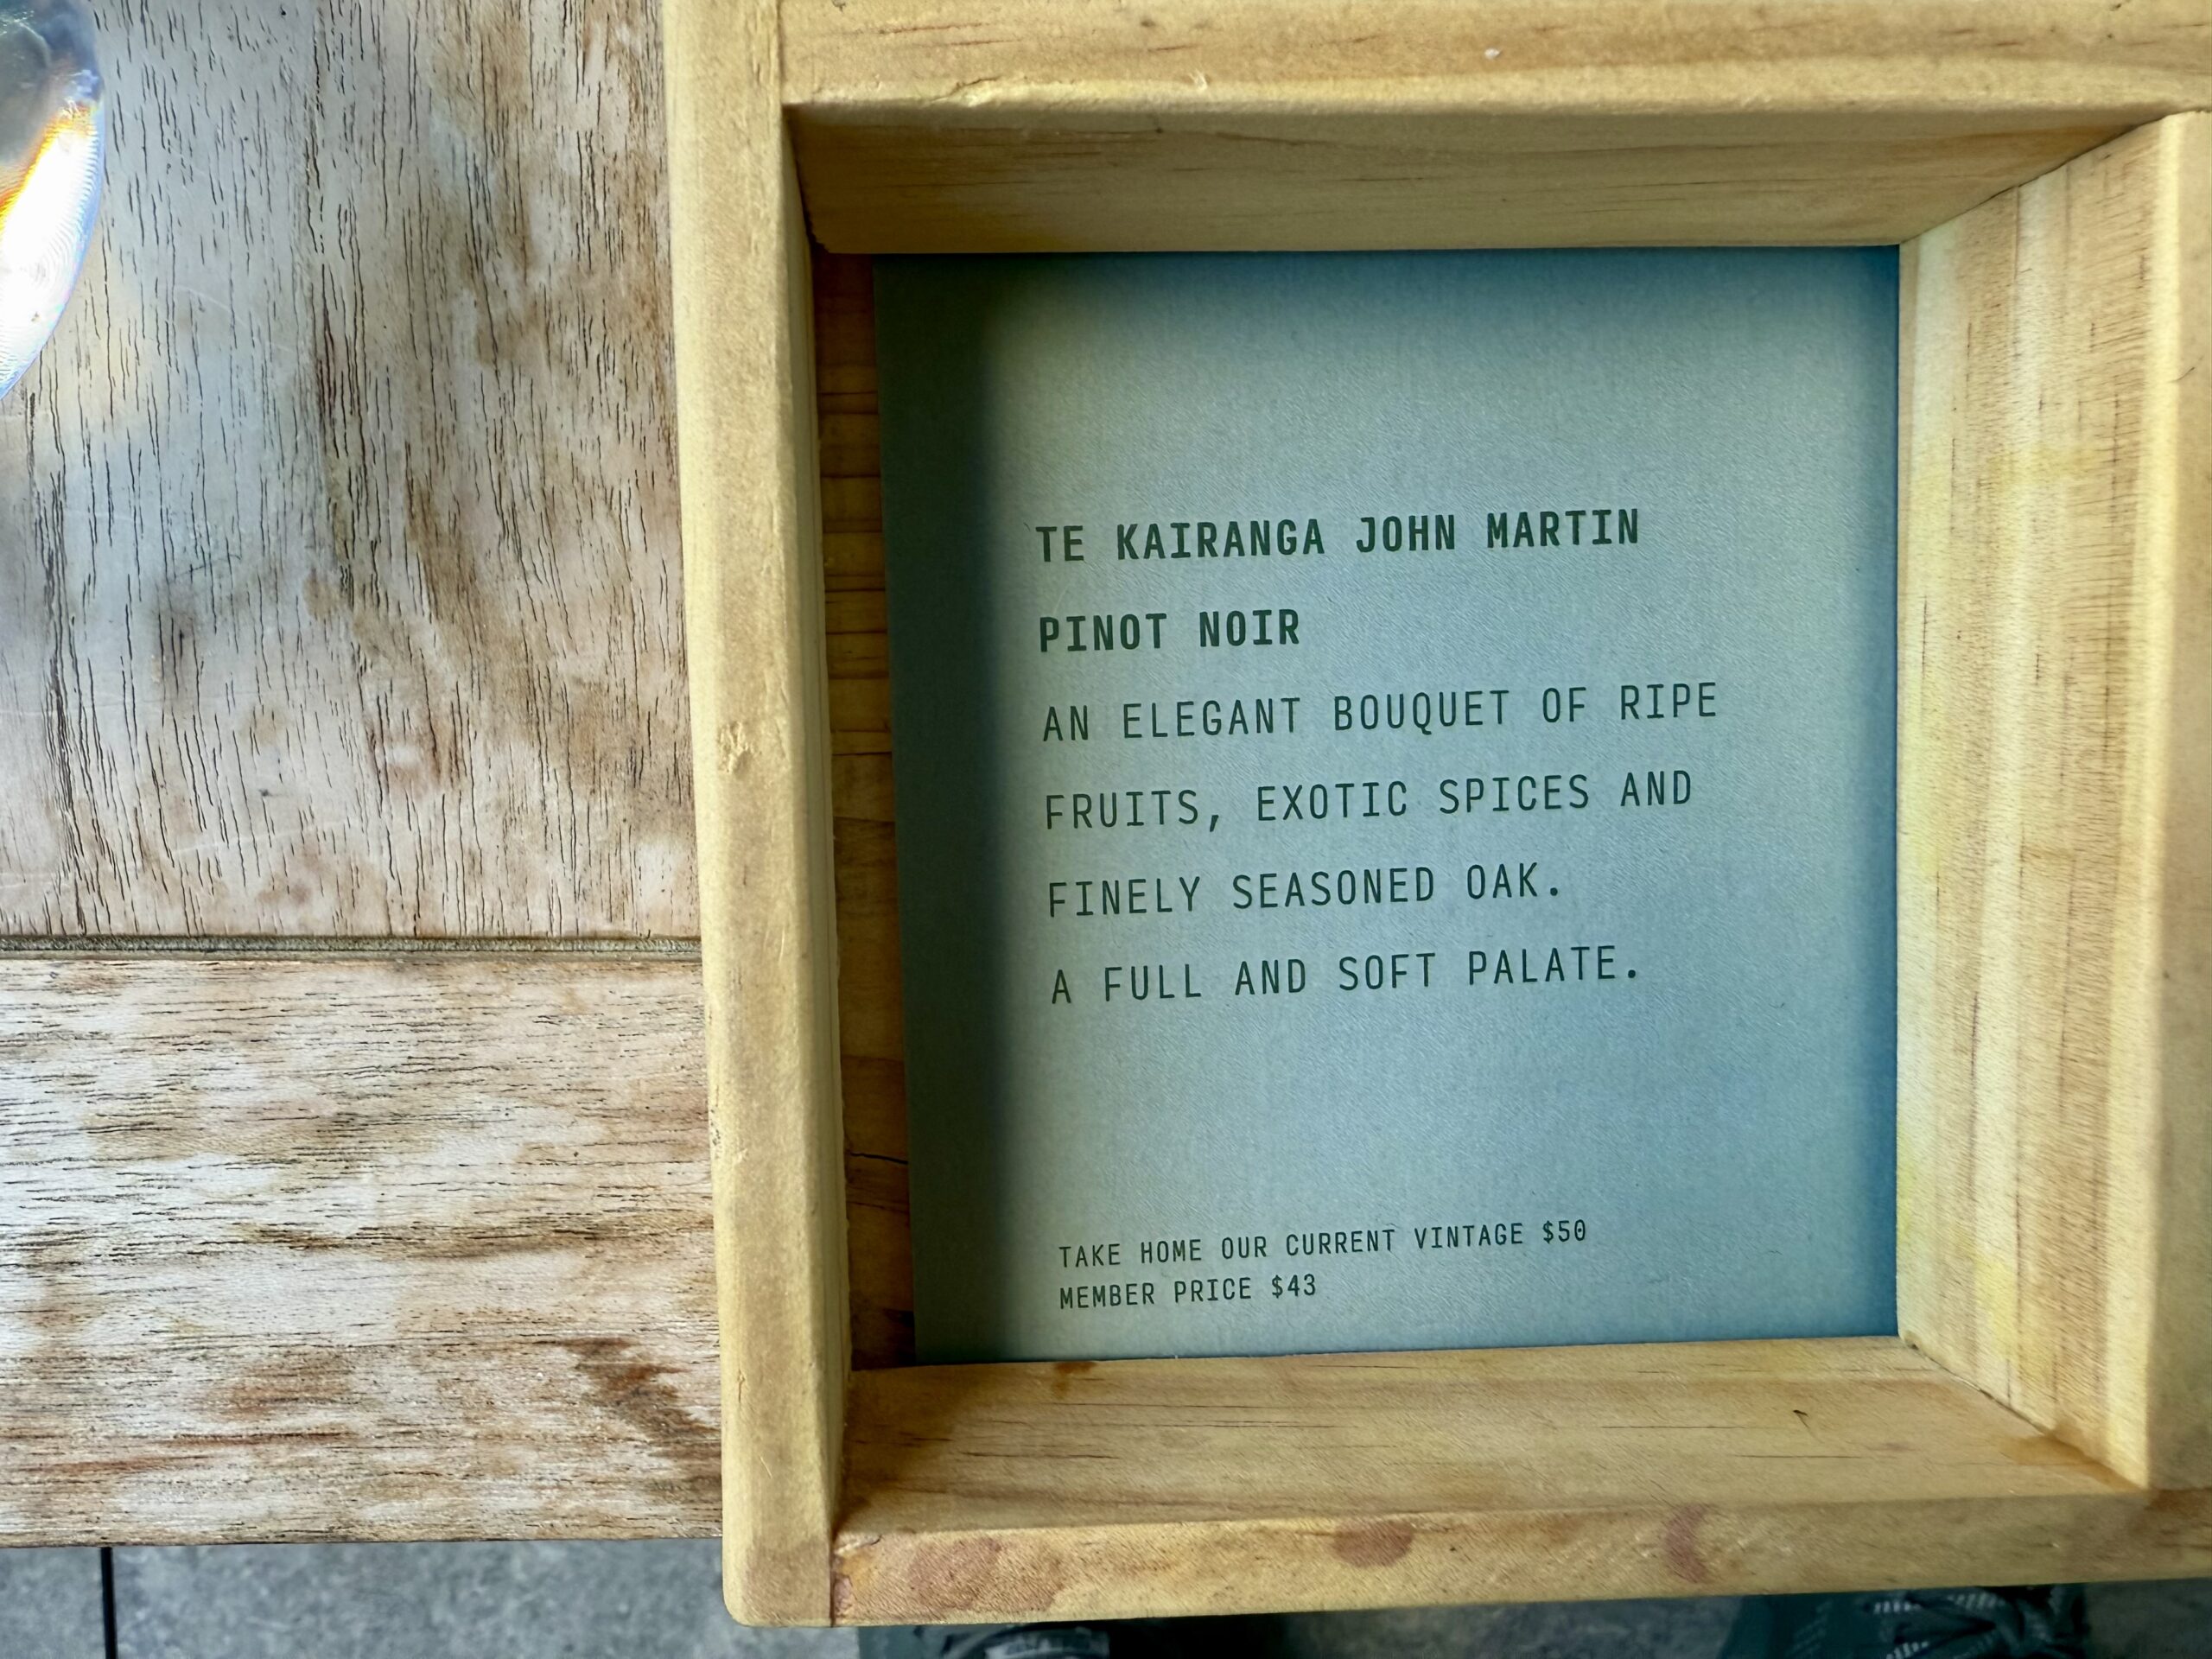 TE KAIRANGA JOHN MARTIN
PINOT NOIR
AN ELEGANT BOUQUET OF RIPE
FRUITS, EXOTIC SPICES AND
FINELY SEASONED OAK.
A FULL AND SOFT PALATE.
TAKE HOME OUR CURRENT VINTAGE $50
MEMBER PRICE $43